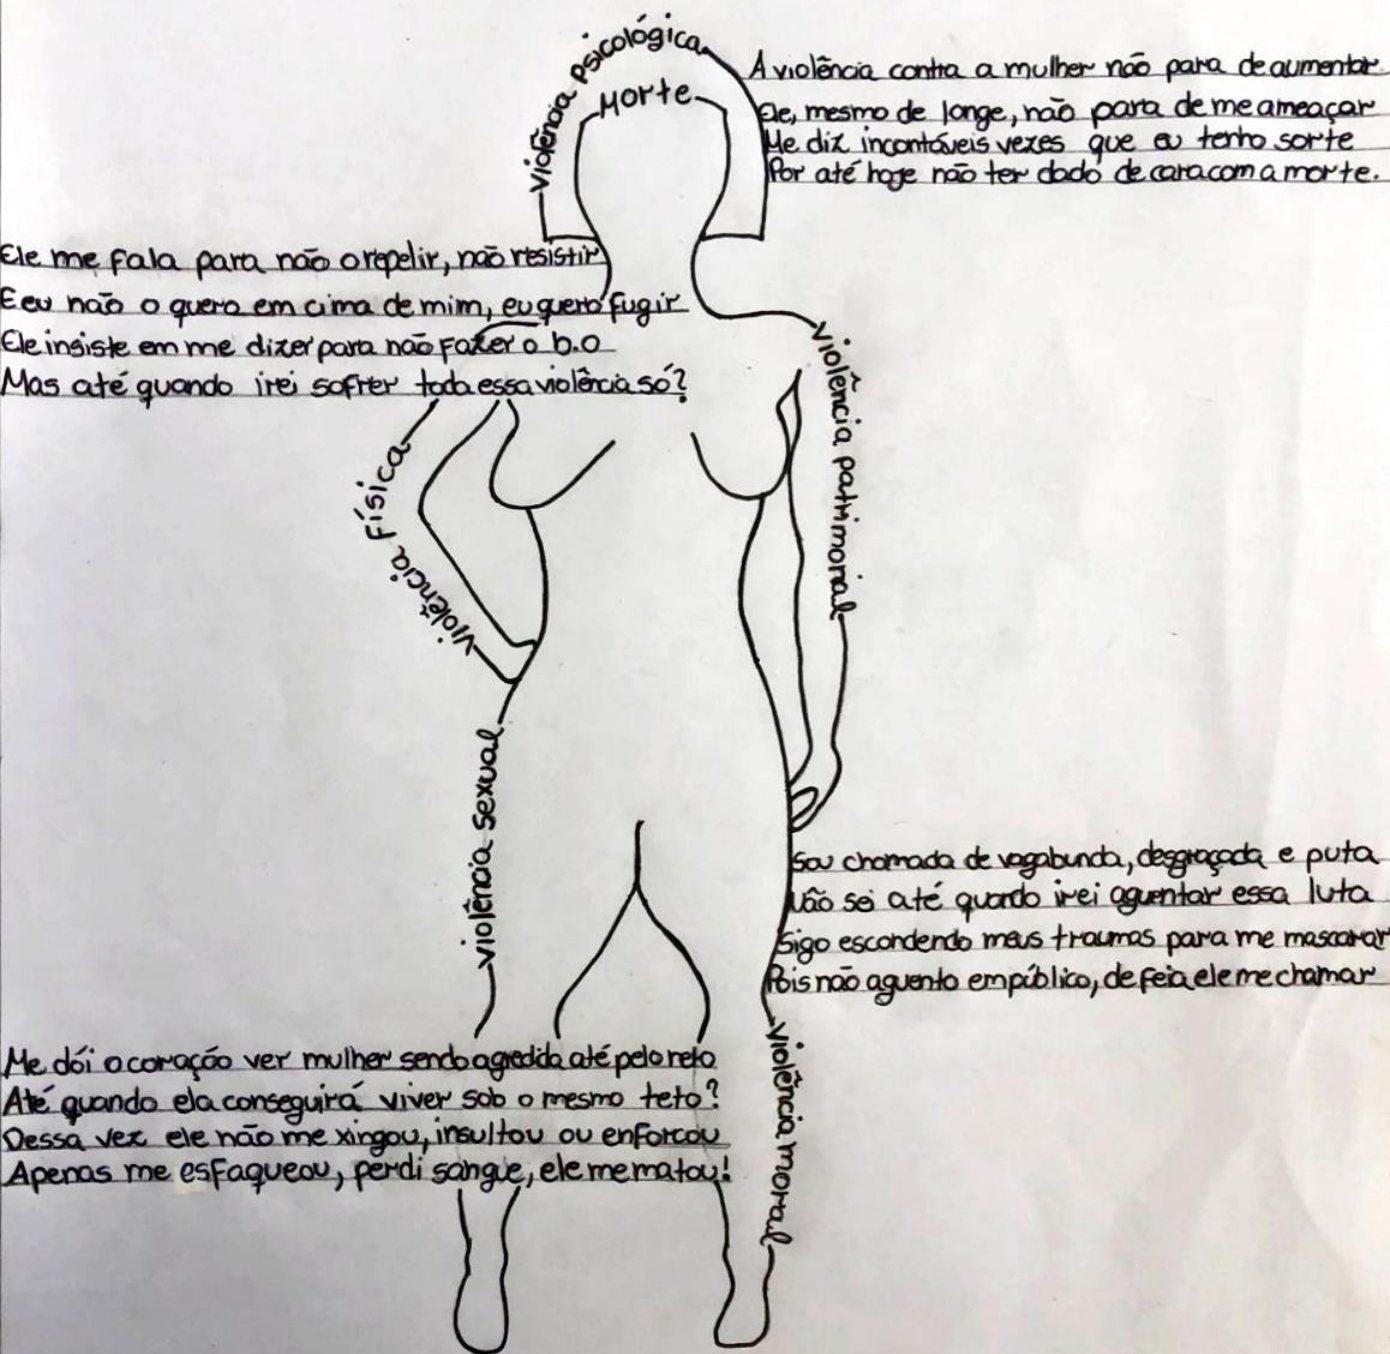 violência psicológica
Morte
A violência contra a mulher não para de aumentar.
Ele, mesmo de longe, não para de me ameaçar
Me diz incontáveis vezes que eu tenho sorte
Por até hoje não ter dado de cara com a morte.
Ele me fala para não o repelir, não resistir
E eu não o quero em cima de mim, eu quero fugir
Ele insiste em me dizer para não fazer o b.o
Mas até quando irei sofrer toda essa violência só?
violência patrimonial
violência Física
violência sexual
Sou chamada de vagabunda, desgraçada e puta
Não sei até quando irei aguentar essa luta
Sigo escondendo meus traumas para me mascarar
Pois não aguento em público, de feia ele me chamar
violência moral
Me dói o coração ver mulher sendo agredida até pelo neto
Até quando ela conseguirá viver sob o mesmo teto?
Dessa vez ele não me xingou, insultou ou enforcou
Apenas me esfaqueou, perdi sangue, ele me matou!